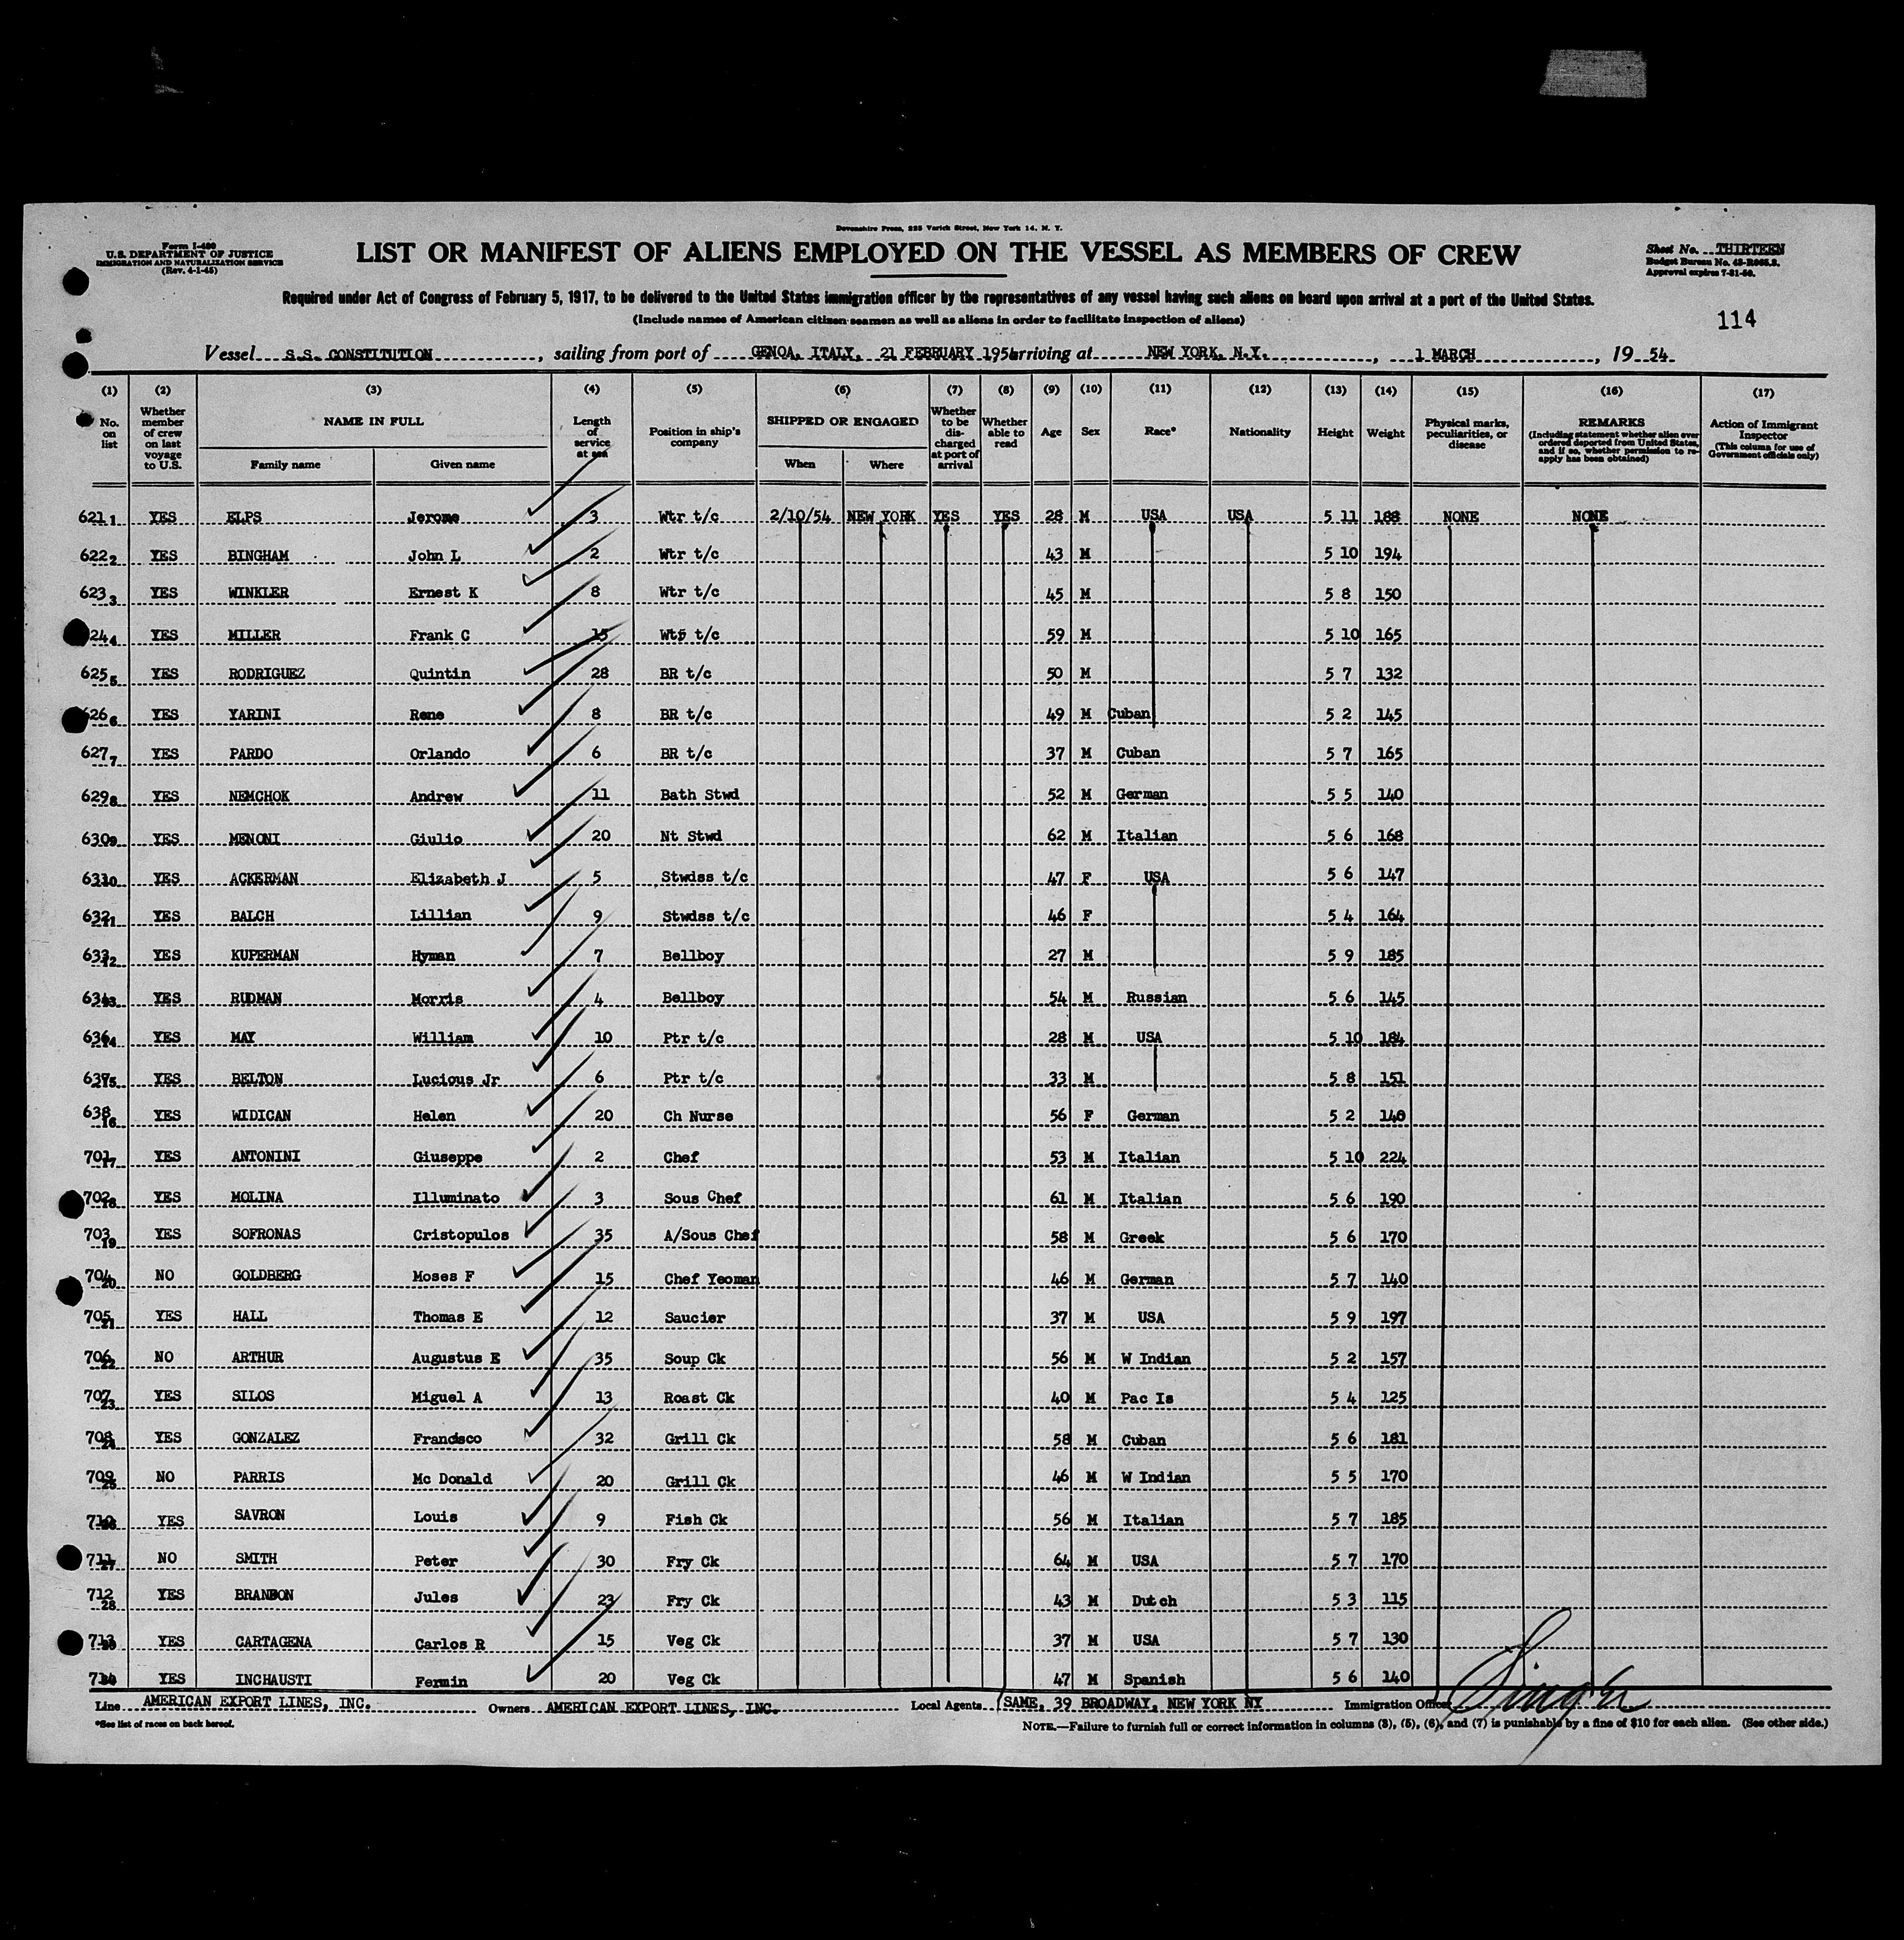 Devonshire Press, 225 Varick Street, New York 14, N. Y.
Form I-480
U.S. DEPARTMENT OF JUSTICE
IMMIGRATION AND NATURALIZATION SERVICE
(Rev. 4-1-45)
LIST OR MANIFEST OF ALIENS EMPLOYED ON THE VESSEL AS MEMBERS OF CREW
Sheet No. THIRTEEN
Budget Bureau No. 43-R065.2.
Approval expires 7-31-50.
Required under Act of Congress of February 5, 1917, to be delivered to the United States immigration officer by the representatives of any vessel having such aliens on board upon arrival at a port of the United States.
(Include names of American citizen seamen as well as aliens in order to facilitate inspection of aliens)
114
Vessel S.S. CONSTITUTION, sailing from port of GENOA, ITALY, 21 FEBRUARY 1954 arriving at NEW YORK, N.Y., 1 MARCH, 19 54
(1) (2) (3) (4) (5) (6) (7) (8) (9) (10) (11) (12) (13) (14) (15) (16) (17)
No. on list
Whether member of crew on last voyage to U.S.
NAME IN FULL
Family name Given name
Length of service at sea
Position in ship's company
SHIPPED OR ENGAGED
When Where
Whether to be discharged at port of arrival
Whether able to read
Age Sex Race* Nationality Height Weight
Physical marks, peculiarities, or disease
REMARKS
(Including statement whether alien ever ordered deported from United States, and if so, whether permission to reapply has been obtained)
Action of Immigrant Inspector
(This column for use of Government officials only)
621 1 YES ELPS Jerome 3 Wtr t/c 2/10/54 NEW YORK YES YES 28 M USA USA 5 11 188 NONE NONE
622 2 YES BINGHAM John L 2 Wtr t/c 43 M 5 10 194
623 3 YES WINKLER Ernest K 8 Wtr t/c 45 M 5 8 150
24 4 YES MILLER Frank C 15 Wtr t/c 59 M 5 10 165
625 5 YES RODRIGUEZ Quintin 28 BR t/c 50 M 5 7 132
626 6 YES YARINI Rene 8 BR t/c 49 M Cuban 5 2 145
627 7 YES PARDO Orlando 6 BR t/c 37 M Cuban 5 7 165
629 8 YES NEMCHOK Andrew 11 Bath Stwd 52 M German 5 5 140
630 9 YES MENONI Giulio 20 Nt Stwd 62 M Italian 5 6 168
631 10 YES ACKERMAN Elizabeth J 5 Stwdss t/c 47 F USA 5 6 147
632 11 YES BALCH Lillian 9 Stwdss t/c 46 F 5 4 164
633 12 YES KUPERMAN Hyman 7 Bellboy 27 M 5 9 185
634 13 YES RUDMAN Morris 4 Bellboy 54 M Russian 5 6 145
636 14 YES MAY William 10 Ptr t/c 28 M USA 5 10 184
637 15 YES BELTON Lucious Jr 6 Ptr t/c 33 M 5 8 151
638 16 YES WIDICAN Helen 20 Ch Nurse 56 F German 5 2 140
701 17 YES ANTONINI Giuseppe 2 Chef 53 M Italian 5 10 224
702 18 YES MOLINA Illuminato 3 Sous Chef 61 M Italian 5 6 190
703 19 YES SOFRONAS Cristopulos 35 A/Sous Chef 58 M Greek 5 6 170
704 20 NO GOLDBERG Moses F 15 Chef Yeoman 46 M German 5 7 140
705 21 YES HALL Thomas E 12 Saucier 37 M USA 5 9 197
706 22 NO ARTHUR Augustus E 35 Soup Ck 56 M W Indian 5 2 157
707 23 YES SILOS Miguel A 13 Roast Ck 40 M Pac Is 5 4 125
708 24 YES GONZALEZ Francisco 32 Grill Ck 58 M Cuban 5 6 181
709 25 NO PARRIS Mc Donald 20 Grill Ck 46 M W Indian 5 5 170
710 26 YES SAVRON Louis 9 Fish Ck 56 M Italian 5 7 185
711 27 NO SMITH Peter 30 Fry Ck 64 M USA 5 7 170
712 28 YES BRANDON Jules 23 Fry Ck 43 M Dutch 5 3 115
713 29 YES CARTAGENA Carlos R 15 Veg Ck 37 M USA 5 7 130
714 30 YES INCHAUSTI Fermin 20 Veg Ck 47 M Spanish 5 6 140
Line AMERICAN EXPORT LINES, INC. Owners AMERICAN EXPORT LINES, INC. Local Agents SAME, 39 BROADWAY, NEW YORK NY Immigration Officer
*See list of races on back hereof.
NOTE.—Failure to furnish full or correct information in columns (3), (5), (6), and (7) is punishable by a fine of $10 for each alien. (See other side.)